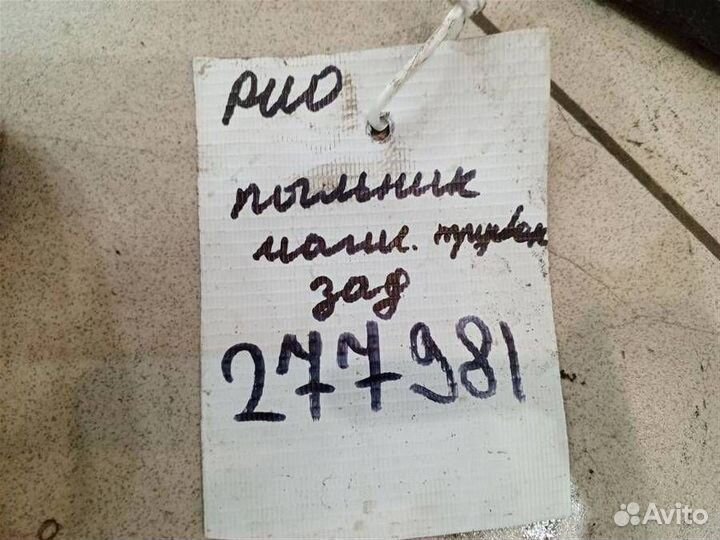 РИО
пыльник
маш.
зад
277981
Avito